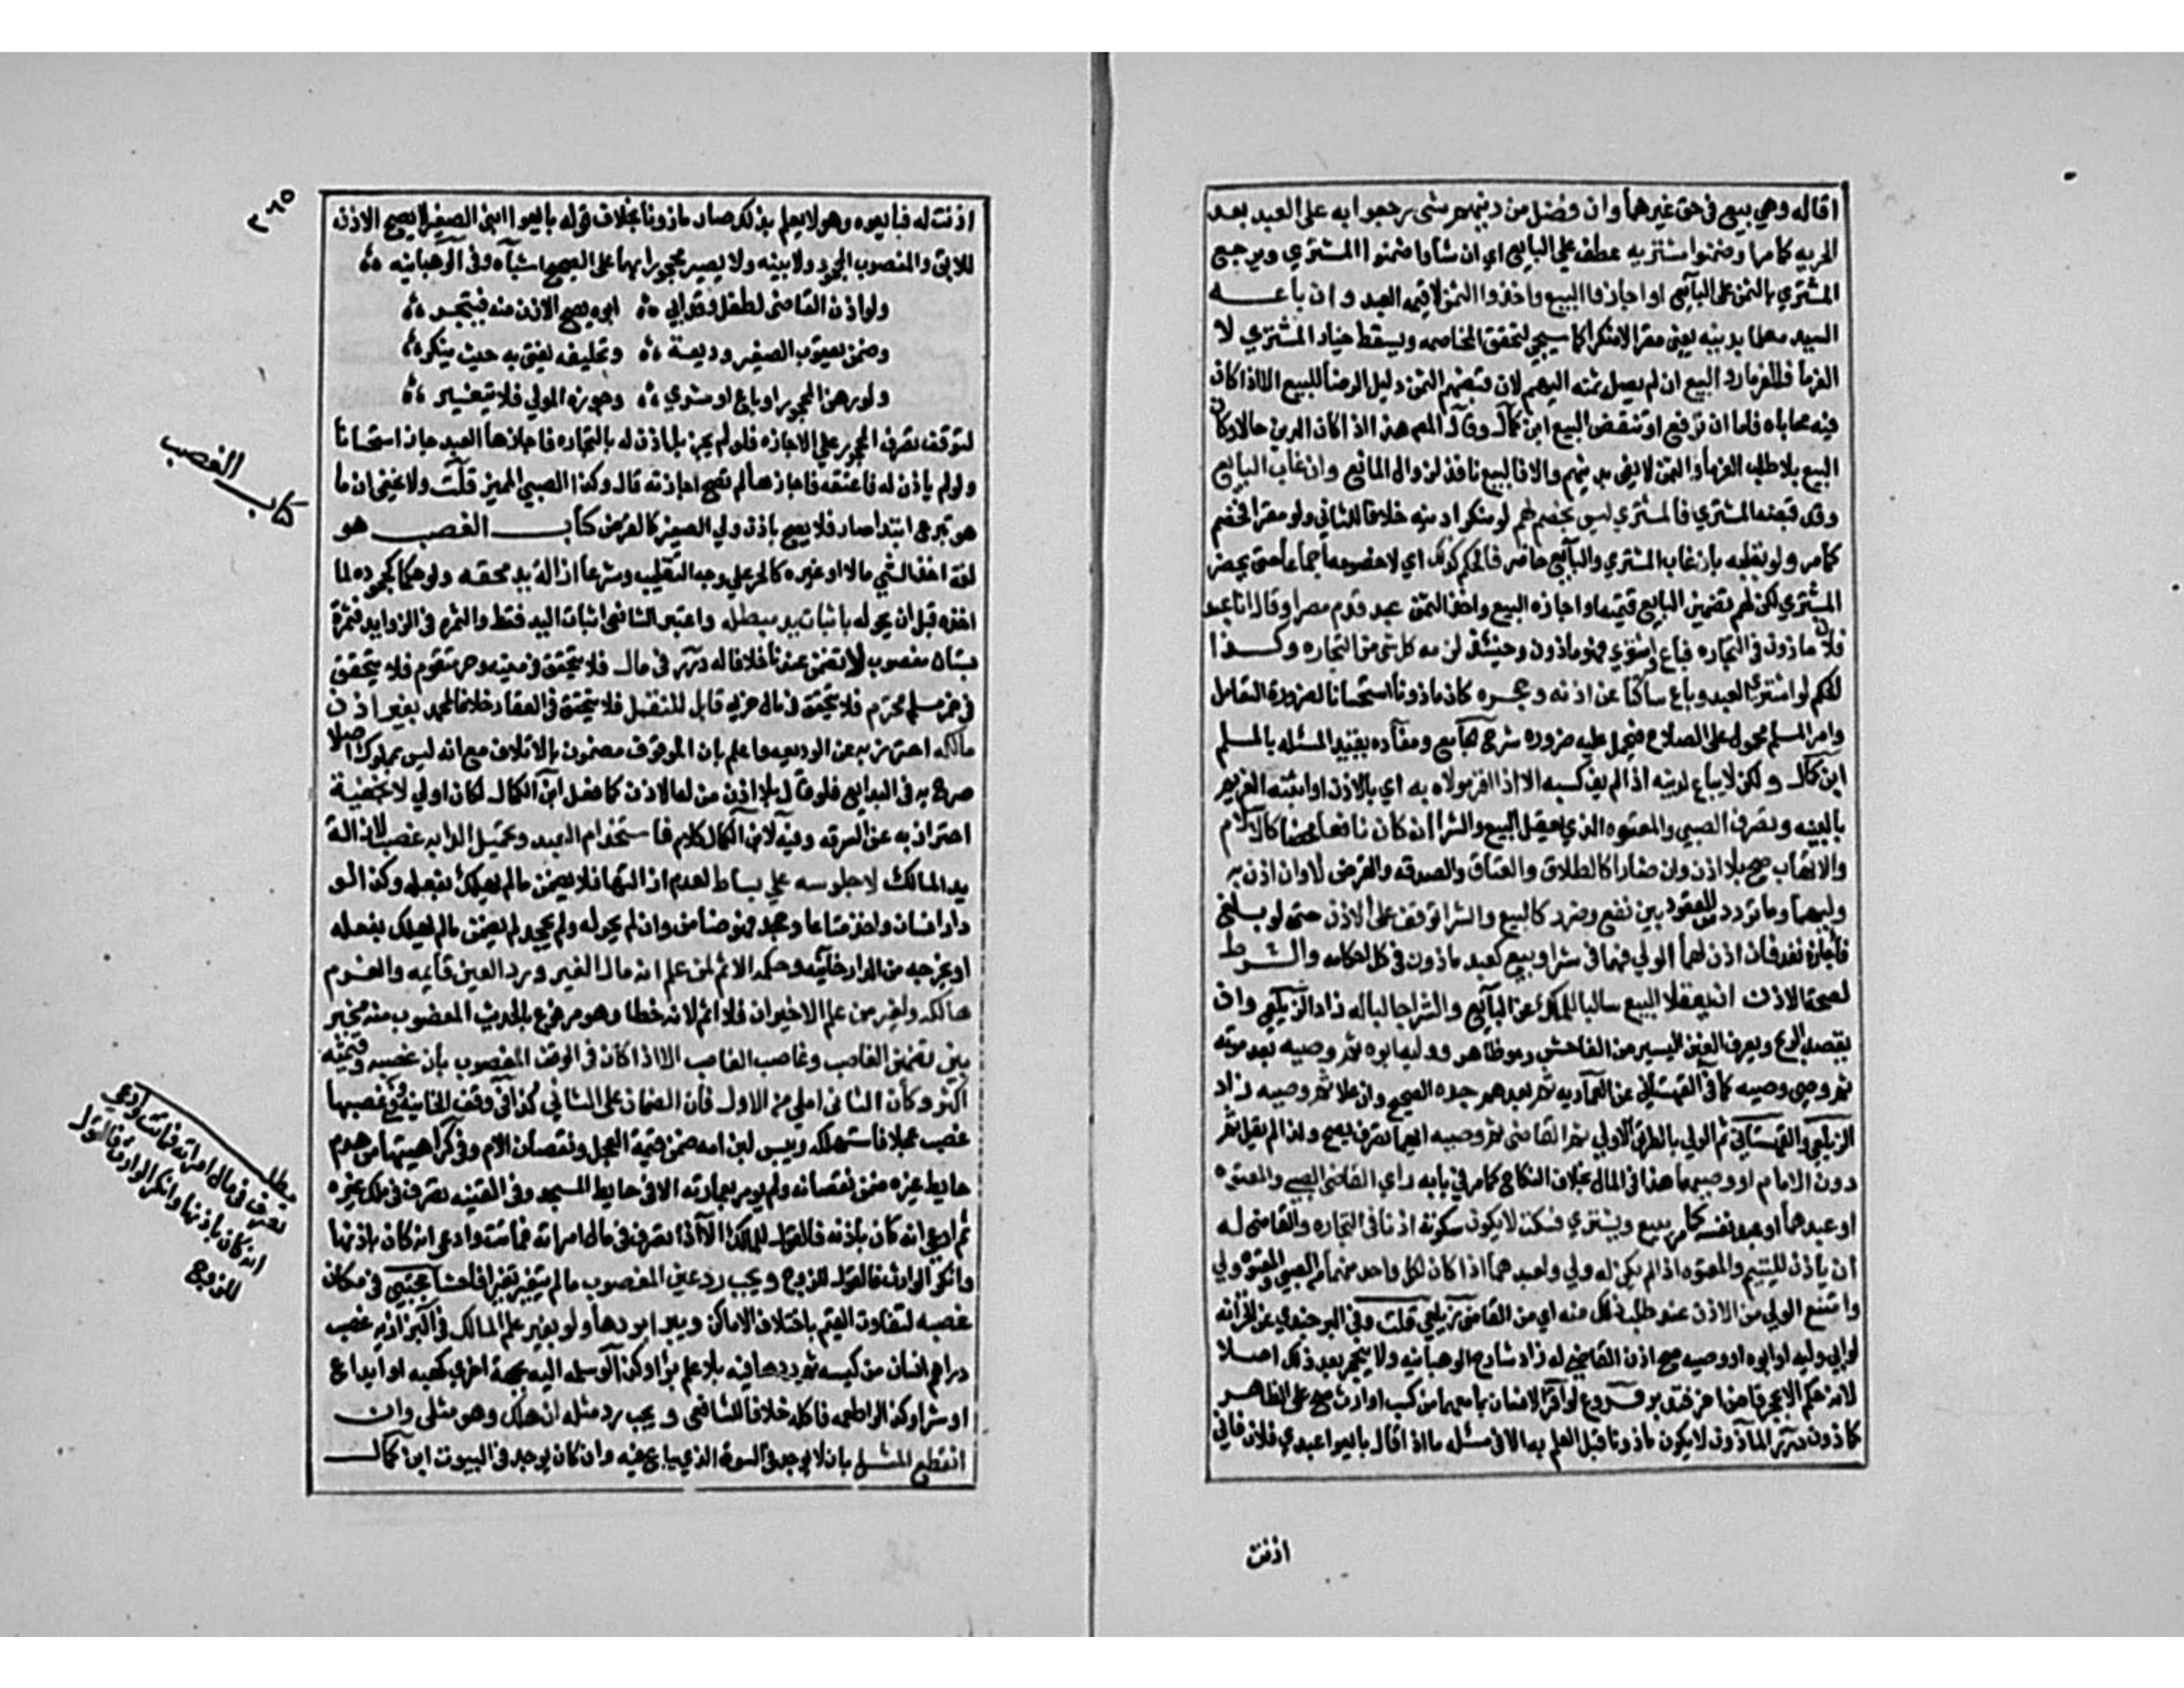 اقاله وهي بيع في حق غيرهما وان فضل من دينهم شى رجعوا به على العبد بعد
الحريه كما مر او ضمنوا مشتريه عطف على البايع اي ان شاوا ضمنوا المشتري ويرجع
المشتري بالثمن على البايع او اجازوا البيع واخذوا الثمن لا قيمة العبد وان باعه
السيد معلما بدينه يعنى مقرا لا منكرا كما سيجي لتحقق المخاصمه ويسقط خيار المشتري لا
الغرما فللغرما رد البيع ان لم يصل ثمنه اليهم لان قبضهم الثمن دليل الرضا للبيع الا اذا كان
فيه محاباه فاما ان ترفع او تنقض البيع ابن كمال وقال المص هذا اذا كان الدين حالا وكان
البيع بلا طلب الغرما والثمن لا يفى بدينهم والا فالبيع نافذ لزوال المانع وان غاب البايع
وقد قبضه المشتري فالمشتري ليس بخصم لهم لو منكرا دينه خلافا للثاني ولو مقرا فخصم
كما مر ولو بقلبه بان غاب المشتري والبايع حاضر فالحكم كذلك اي لا خصومه اجماعا حتى يحضر
المشتري لكن لهم تضمين البايع قيمته او اجازه البيع واخذ الثمن عبد قدم مصرا وقال انا عبد
فلان ماذون في التجاره فباع واشتري فهو ماذون وحينئذ لزمه كل شى من التجاره وكذا
الحكم لو اشتري العبد وباع ساكتا عن اذنه وحجره كان ماذونا استحسانا لضرورة التعامل
وامر المسلم محمول على الصلاح فيحمل عليه ضروره شرح الجامع ومفاده تقييد المسئله بالمسلم
ابن كمال ولكن لا يباع لدينه اذا لم يف كسبه الا اذا اقر مولاه به اي بالاذن او اثبته الغريم
بالبينه وتصرف الصبي والمعتوه الذي يعقل البيع والشرا ان كان نافعا محضا كالاسلام
والاتهاب صح بلا اذن وان ضارا كالطلاق والعتاق والصدقه والقرض لا وان اذن به
وليهما وما تردد من العقود بين نفع وضرر كالبيع والشرا توقف على الاذن حتى لو بلغ
فاجازه نفذ فان اذن لهما الولي فهما في شرا وبيع كعبد ماذون في كل احكامه والشرط
لصحة الاذن ان يعقلا البيع سالبا للملك عن البايع والشرا جالبا له زاد الزيلعي وان
يقصد الربح ويعرف الغبن اليسير من الفاحش وهو ظاهر ووليه ابوه ثم وصيه بعد موته
ثم وصي وصيه كما في القهستاني عن العماديه ثم بعدهم جده الصحيح وان علا ثم وصيه زاد
الزيلعي والقهستاني ثم الولي بالطريق الاولي ثم القاضى ثم وصيه ايهما تصرف يصح ولذا لم يقل ثم
دون الام او وصيها هذا في المال بخلاف النكاح كما مر في بابه راي القاضى الصبي والمعتوه
او عبدهما او عبد نفسه كما مر يبيع ويشتري فسكت لا يكون سكوته اذنا في التجاره والقاضى له
ان ياذن لليتيم والمعتوه اذا لم يكن له ولي ولعبدهما اذا كان لكل واحد منهما ام الصبي والمعتوه ولي
وامتنع الولي من الاذن عند طلب ذلك منه اي من القاضى زيلعي قلت وفي البرجندي عن الخزانه
لو ابي وليه او ابوه او وصيه صح اذن القاضي له زاد شارح الوهبانيه ولا ينحجر بعد ذلك اصلا
لانه حكم الا بحجر قاض اخر فتدبر فروع لو اقر الانسان بما معهما من كسب او ارث صح على الظاهر
كماذون درر الماذون لا يكون ماذونا قبل العلم به الا في مسئله ما اذا قال بايعوا عبدي فلان فاني
اذنت
٣٦٥
اذنت له فبايعوه وهو لا يعلم بذلك صار ماذونا بخلاف قوله بايعوا ابنى الصغير لا يصح الاذن
للابق والمغصوب المجحود ولا بينه ولا يصير محجورا بهما على الصحيح اشباه وفى الوهبانيه
ولو اذن القاضى لطفل وقد ابي ابوه يصح الاذن منه فيتجر
وضمن بعتوب الصغير وديعة وتحليفه يفتى به حيث ينكر
ولو رهن المحجور او باع او شري وجوزه المولي فلا يتغير
لتوقف تصرف المحجور على الاجازه فلو لم يجز بل اذن له بالتجاره فاجازها العبد جاز استحسانا
ولو لم ياذن له فاعتقه فاجازها لم تصح اجازته قال وكذا الصبي المميز قلت ولا يخفى ان ما
هو تبرع ابتدا ضار فلا يصح باذن ولي الصغير كالقرض كتاب الغصب هو
لغة اخذ الشي مالا او غيره كالحر على وجه التغلب وشرعا ازالة يد محقه ولو حكما كجحوده لما
اخذه قبل ان يحوله باثبات يد مبطله واعتبر الشافعي اثبات اليد فقط والثمره في الزوايد فثمرة
بستان مغصوب لا تضمن عندنا خلافا له درر فى مال فلا يتحقق فى ميته وحر متقوم فلا يتحقق
في خمر مسلم محترم فلا يتحقق في مال حربي قابل للنقل فلا يتحقق في العقار خلافا لمحمد بغير اذن
مالكه احترز به عن الوديعه واعلم بان الموقوف مضمون بالاتلاف مع انه ليس بمملوك اصلا
صرح به في البدايع فلو قال بلا اذن من له الاذن كما فعل ابن الكمال لكان اولي لا بخفية
احترز به عن السرقه وفيه لابن الكمال كلام فاستخدام العبد وتحميل الدابه غصب لازالة
يد المالك لا جلوسه على بساط لعدم ازالتها فلا يضمن ما لم يهلك بفعله وكذا لو
دار انسان واخذ متاعا وجحد فهو ضامن وان لم يحوله ولم يجحد لم يضمن ما لم يهلك بفعله
او يخرجه من الدار خانيه وحكمه الاثم لمن علم انه مال الغير ورد العين قايمه والغرم
هالكه ولغير من علم الاخيران فلا اثم لانه خطا وهو مرفوع بالحديث المغصوب منه مخير
بين تضمين الغاصب وغاصب الغاصب الا اذا كان في الوقف المغصوب بان غصبه وقيمته
اكثر وكان الثاني املي من الاول فان الضمان على الثاني كذا في وقف الخانيه وفي غصبها
غصب عجلا فاستهلكه ويبس لبن امه ضمن قيمة العجل ونقصان الام وفي كراهيتها من هدم
حايط غيره ضمن نقصانه ولم يومر بعمارته الا في حايط المسجد وفي القنيه تصرف في ملك غيره
ثم ادعي انه كان باذنه فالقول للمالك الا اذا تصرف في مال امراته فماتت وادعي انه كان باذنها
وانكر الوارث فالقول للزوج ويجب رد عين المغصوب ما لم يتغير تغيرا فاحشا مجتبي في مكان
غصبه لتفاوت القيم باختلاف الاماكن ويبرا بردها ولو بغير علم المالك في البزازيه غصب
دراهم انسان من كيسه ثم ردها فيه بلا علمه برا وكذا لو سلمه اليه بجهة اخري كهبه او ايداع
او شرا وكذا لو اطعمه فاكله خلافا للشافعى ويجب رد مثله ان هلك وهو مثلى وان
انقطع المثل بان لا يوجد في السوق الذي يباع فيه وان كان يوجد في البيوت ابن كمال
كتاب الغصب
مطلب
تصرف في مال امراته فماتت وادعي
انه كان باذنها وانكر الوارث فالقول
للزوج